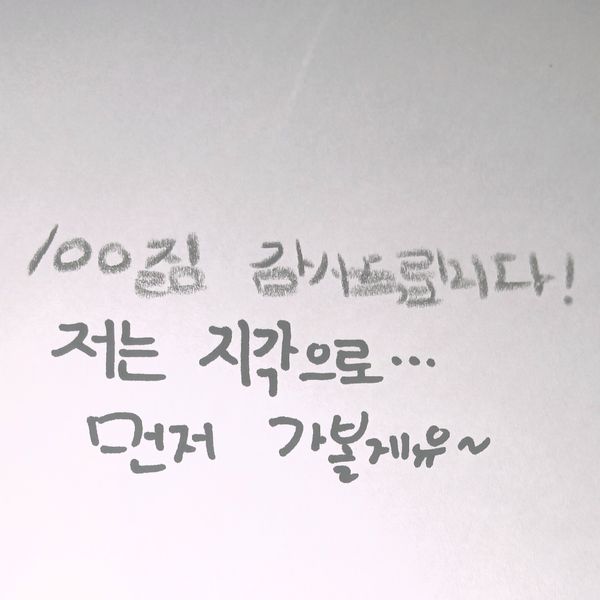 100점 감사드립니다!
저는 지각으로...
먼저 가볼게유~